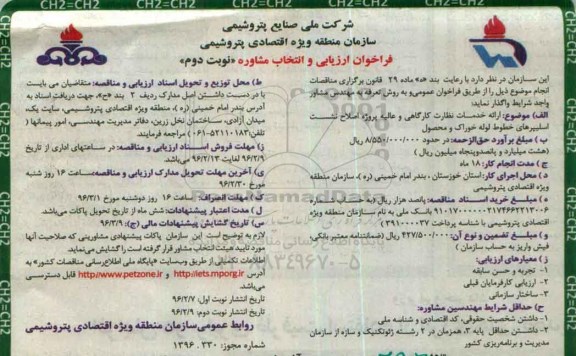 شرکت ملی صنایع پتروشیمی
سازمان منطقه ویژه اقتصادی پتروشیمی
فراخوان ارزیابی و انتخاب مشاوره «نوبت دوم»
این سازمان در نظر دارد با رعایت بند «ه» ماده ۲۹ قانون برگزاری مناقصات
انجام موضوع ذیل را از طریق فراخوان عمومی و به روش تعرفه به مهندس مشاور
واجد شرایط واگذار نماید:
الف) موضوع: ارائه خدمات نظارت کارگاهی و عالیه پروژه اصلاح نشست
اسلیپرهای خطوط لوله خوراک و محصول
ب) مبلغ برآورد حق‌الزحمه: در حدود ۸/۵۵۰/۰۰۰/۰۰۰ ریال
(هشت میلیارد و پانصدوپنجاه میلیون ریال)
ج) مدت انجام کار: ۱۸ ماه
د) محل اجرای کار: استان خوزستان، بندر امام خمینی (ره)، سازمان منطقه
ویژه اقتصادی پتروشیمی
ه) مبلغ خرید اسناد مناقصه: پانصد هزار ریال (به حساب
بانک ملی به نام سازمان منطقه ویژه
اقتصادی پتروشیمی با شناسه پرداخت
و) مبلغ تضمین و نوع آن: ۴۲۷/۵۰۰/۰۰۰ ریال (ضمانتنامه معتبر بانکی یا
فیش واریز به حساب سازمان)
ز) معیارهای ارزیابی:
۱- تجربه و حسن سابقه
۲- ارزیابی کارفرمایان قبلی
۳- ساختار سازمانی
ح) حداقل شرایط مهندسین مشاوره:
۱- داشتن شخصیت حقوقی، کد اقتصادی و شناسه ملی
۲- داشتن حداقل پایه ۳، همزمان در ۲ رشته ژئوتکنیک و سازه از سازمان
مدیریت و برنامه‌ریزی کشور
ط) محل توزیع و تحویل اسناد ارزیابی و مناقصه: متقاضیان می بایست
با در دست داشتن اصل مدارک ردیف ۲ بند «ح»، جهت دریافت اسناد به
آدرس بندر امام خمینی (ره)، منطقه ویژه اقتصادی پتروشیمی، سایت یک،
میدان آزادی، ساختمان نخل زرین، دفاتر مدیریت مهندسی، امور پیمانها (
تلفن: ۵۲۱۱۰۱۸۳-۰۶۱) مراجعه فرمایند.
ی) مهلت فروش اسناد ارزیابی و مناقصه: در ساعتهای اداری از تاریخ
۹۶/۲/۹ لغایت ۹۶/۲/۱۳
ک) آخرین مهلت تحویل مدارک ارزیابی و مناقصه: ساعت ۱۶ روز شنبه
مورخ ۹۶/۲/۳۰
ک) مهلت انصراف: ساعت ۱۶ روز دوشنبه مورخ ۹۶/۳/۱
ل) مدت اعتبار پیشنهادات: شش ماه از تاریخ تحویل پاکات می‌باشد.
ی) تاریخ گشایش پیشنهادات مالی (ج): ۹۶/۳/۹
لازم به توضیح است این سازمان پاکات پیشنهادی مشاورینی که صلاحیت آنها
مورد تایید هیئت انتخاب مشاور قرار گرفته است را گشایش می‌نماید.
اطلاعات تکمیلی از طریق وبسایت «پایگاه ملی اطلاع‌رسانی مناقصات کشور» به
آدرس http://iets.mporg.ir و http://www.petzone.ir قابل دسترسی
می‌باشد.
تاریخ انتشار نوبت اول: ۹۶/۲/۷
تاریخ انتشار نوبت دوم: ۹۶/۲/۹
روابط عمومی سازمان منطقه ویژه اقتصادی پتروشیمی
شماره مجوز: ۳۳۰ . ۱۳۹۶